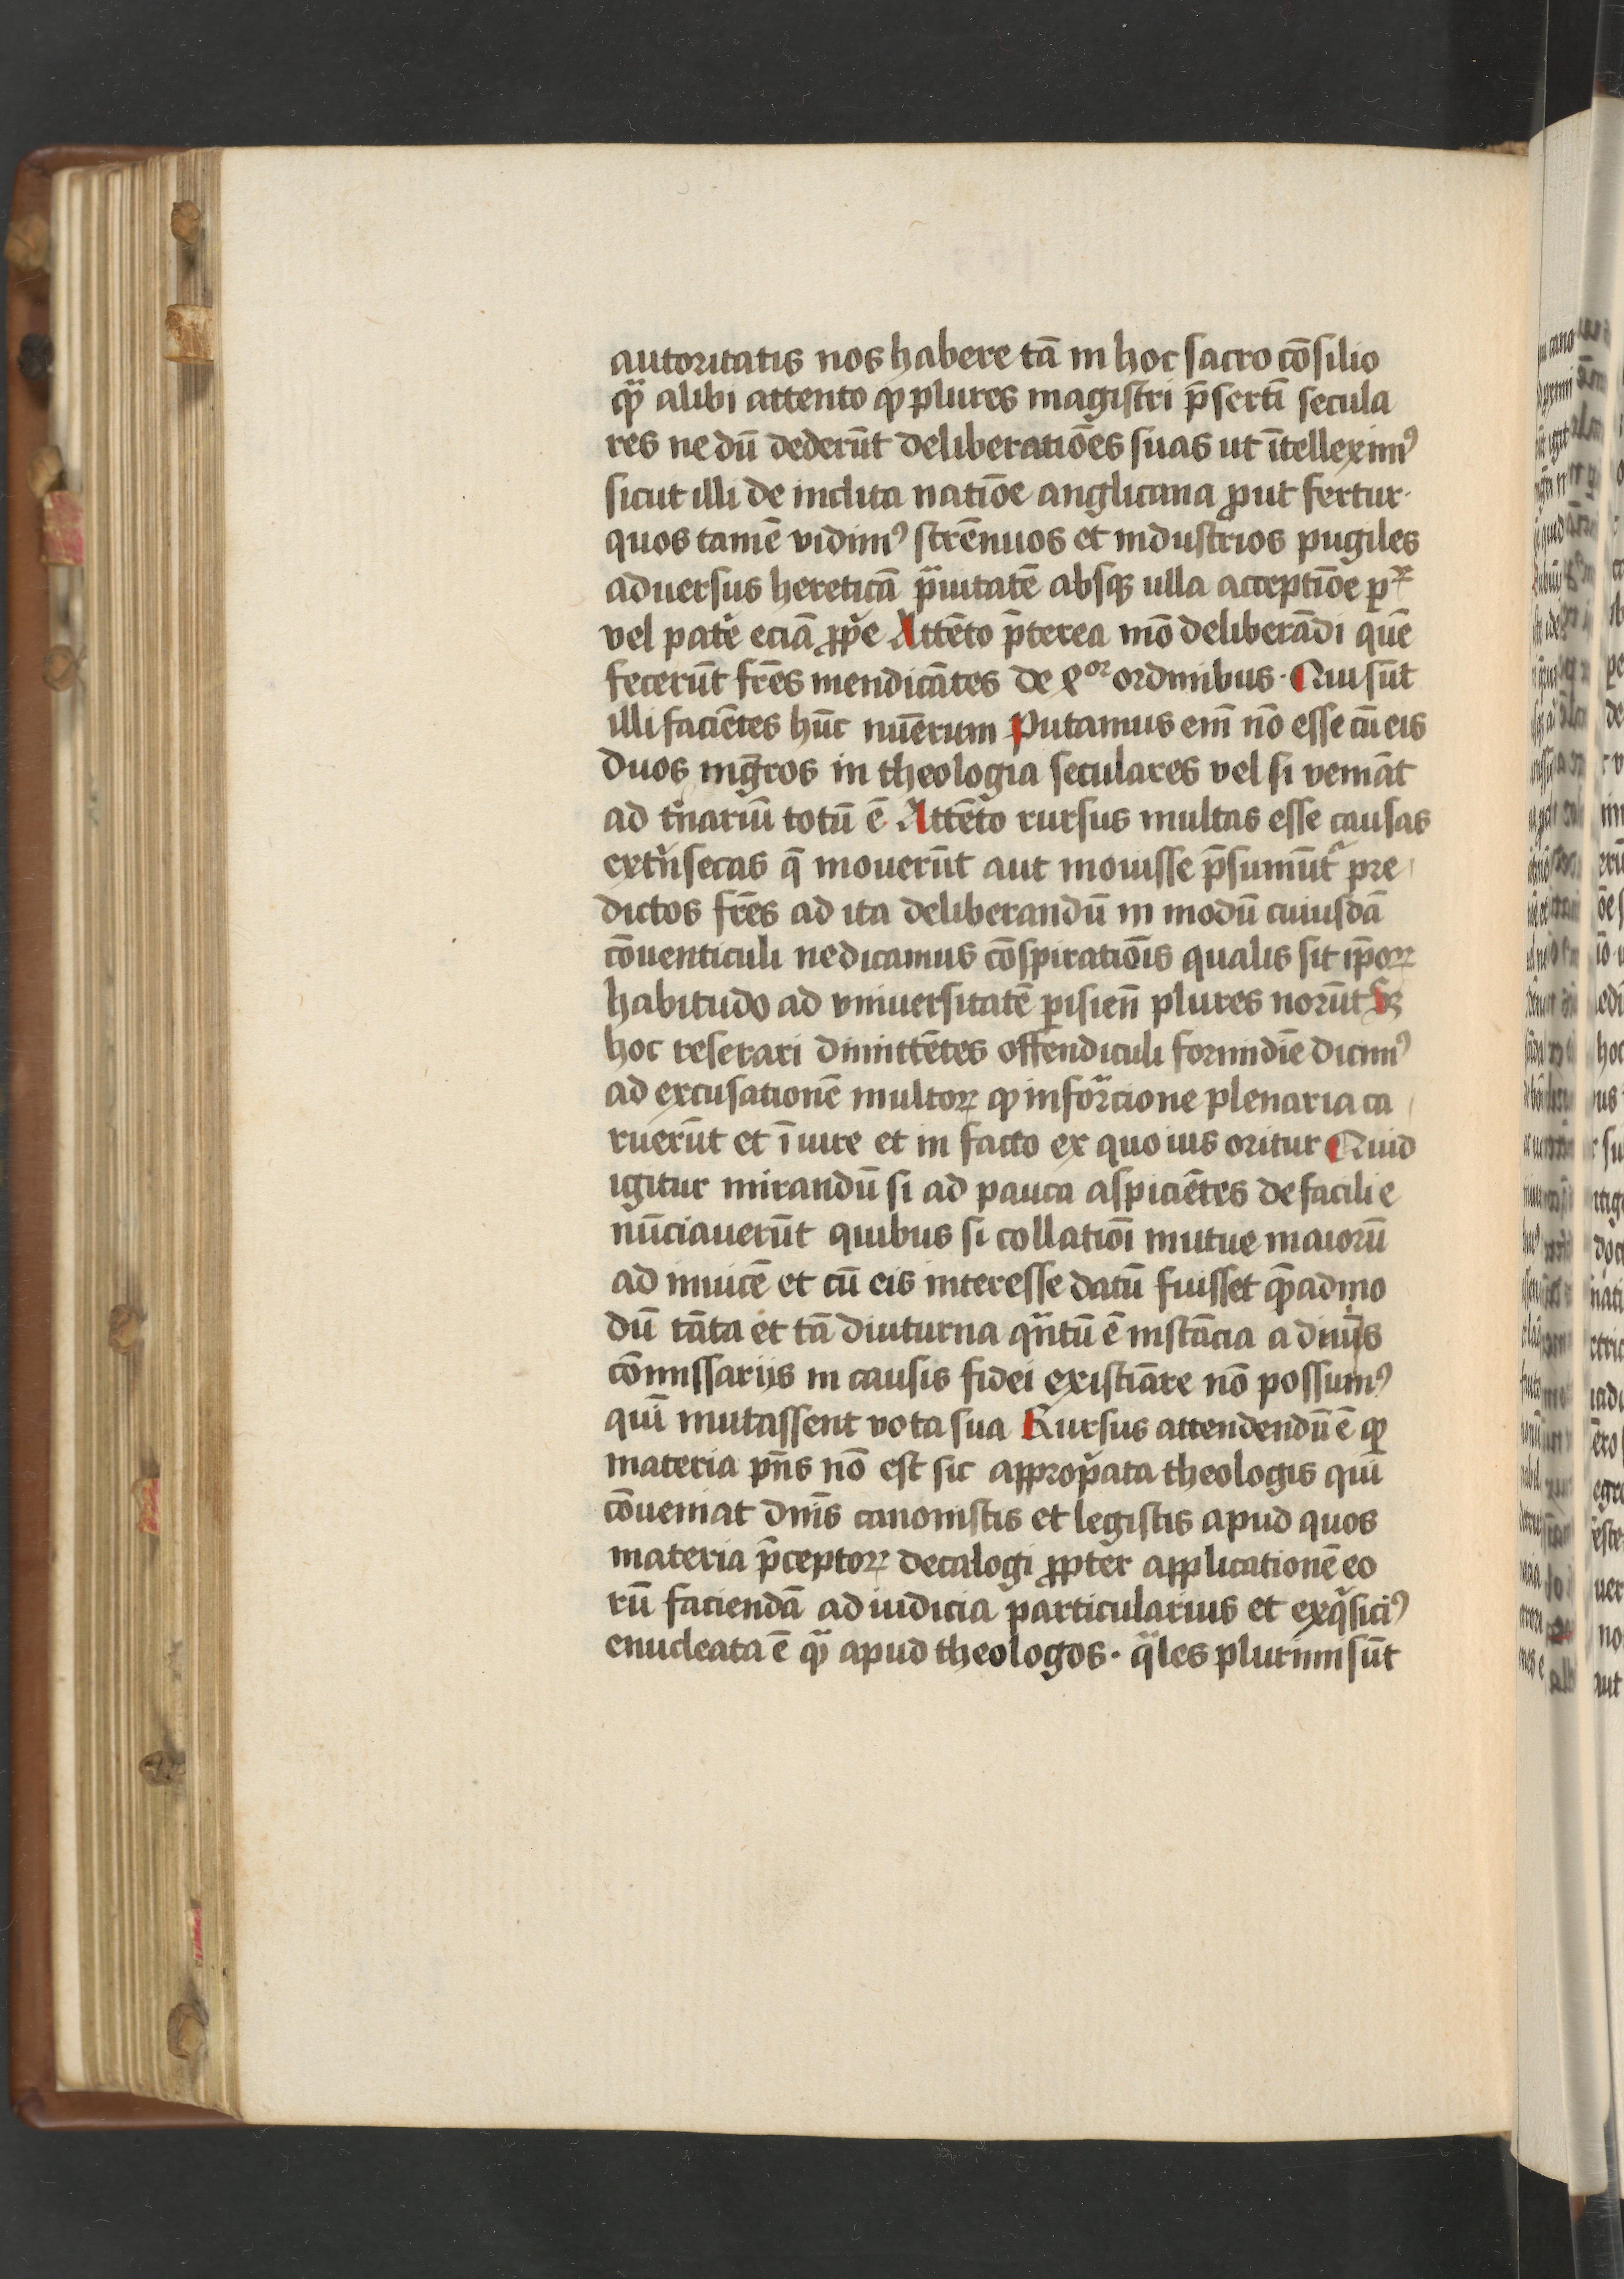 autoritatis nos habere tā in hoc sacro cōsilio
qͣ̄ alibi attento ꝙ plures magistri p̄sertī secula
res nedū dederūt deliberatiōes suas ut ītelleximꝰ
sicut illi de inclita natiōe anglicana ꝓut fertur·
quos tamē vidimꝰ strēnuos et industrios pugiles
aduersus hereticā pͣuitatē absqꝫ ulla acceptiōe
vel patͥe eciā ꝓpͥe Attēto p̄terea mō deliberādi quē
fecerūt fr̄es mendicātes de ordinibus· Qui sūt
illi faciētes hūc nūerum Putamus em̄ nō esse cū eis
duos mgr̄os in theologia seculares vel si veniāt
ad t̓nariū totū ē Attēto rursus multas esse causas
extͥnsecas q̄ mouerūt aut mouisse p̄sumūt᷑ pre
dictos fr̄es ad ita deliberandū in modū cuiusdā
cōuenticuli ne dicamus cōspiratiōis qualis sit ip̄oꝝ
habitudo ad vniuersitatē ꝑisień plures norūt Sꝫ
hoc reserari dimittētes offendiculi formidīe dicimꝰ
ad excusationē multoꝝ ꝙ inforͣcione plenaria ca
ruerūt et ī iure et in facto ex quo ius oritur Quid
igitur mirandū si ad pauca aspiciētes de facili e
nūciauerūt quibus si collatiōi mutue maiorū
ad inuicē et cū eis interesse datū fuisset qͣ̄admo
dū tāta et tā diuturna qͣntū ē instācia a diuͥs
cōmissariis in causis fidei existīare nō possumꝰ
quī mutassent vota sua Rursus attendendū ē ꝙ
materia pn̄s nō est sic appropͥata theologis qui
cōueniat dn̄is canonistis et legistis apud quos
materia p̄ceptoꝝ decalogi ꝓpter applicationē eo
rū faciendā ad iudicia particularius et exqͥsiciꝰ
enucleata ē qͣ̄ apud theologos· qͣles plurimi sūt